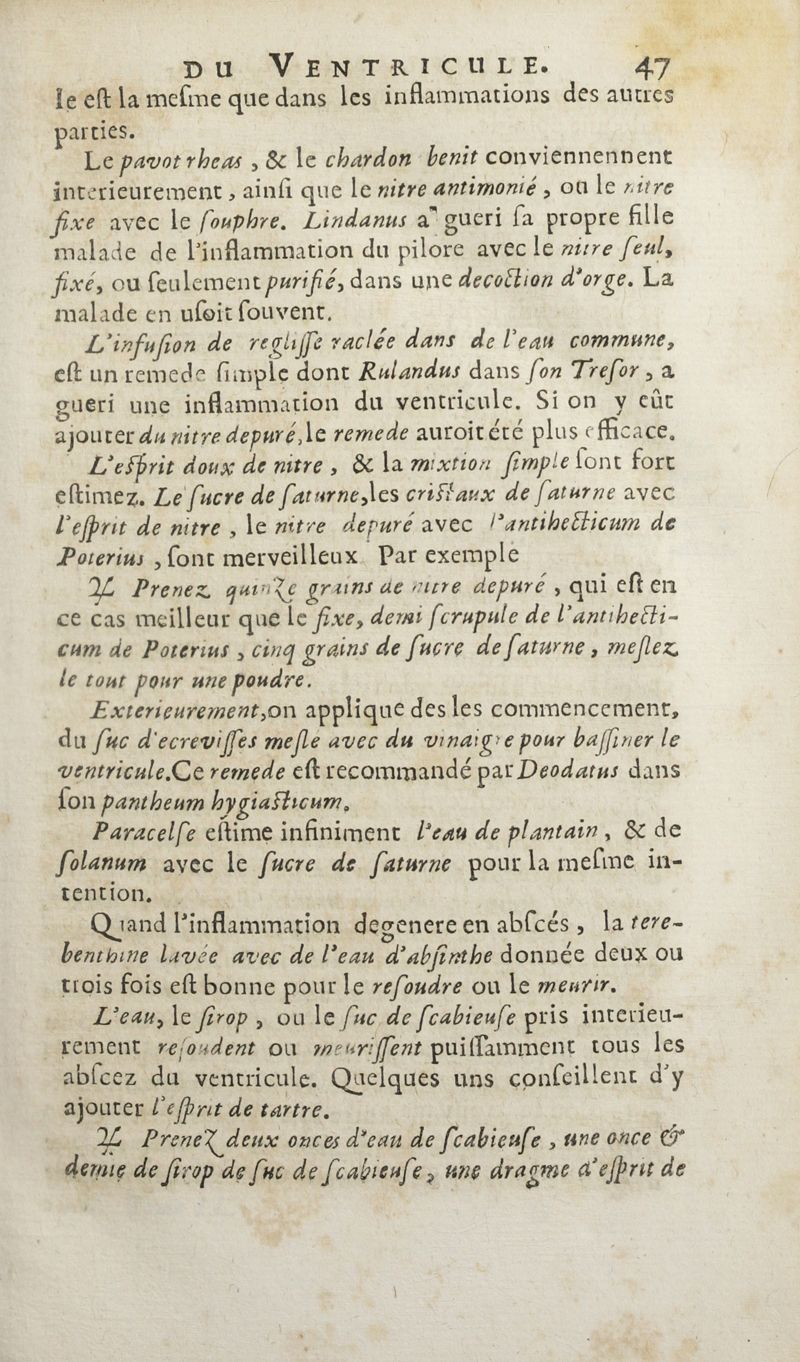 DU VENTRICULE. 47
le eſt la meſme que dans les inflammations des autres
parties.
Le pavot rheas , & le chardon benit conviennennent
interieurement , ainſi que le nitre antimonié , ou le nitre
fixe avec le ſouphre. Lindanus a gueri ſa propre fille
malade de l'inflammation du pilore avec le nitre ſeul,
fixé, ou ſeulement purifié, dans une decoction d'orge. La
malade en uſoit ſouvent.
L'infuſion de regliſſe raclée dans de l'eau commune,
eſt un remede ſimple dont Rulandus dans ſon Treſor , a
gueri une inflammation du ventricule. Si on y eût
ajouter du nitre depuré,le remede auroit été plus efficace.
L'eſprit doux de nitre , & la mixtion ſimple ſont fort
eſtimez. Le ſucre de ſaturne,les criſtaux de ſaturne avec
l'eſprit de nitre , le nitre depuré avec l'antihecticum de
Poterius , ſont merveilleux. Par exemple
♃ Prenez quinze grains de nitre depuré , qui eſt en
ce cas meilleur que le fixe, demi ſcrupule de l'antihecti-
cum de Poterius , cinq grains de ſucre de ſaturne , meſlez
le tout pour une poudre.
Exterieurement,on applique des les commencement,
du ſuc d'ecreviſſes meſle avec du vinaigre pour baſſiner le
ventricule.Ce remede eſt recommandé par Deodatus dans
ſon pantheum hygiaſticum.
Paracelſe eſtime infiniment l'eau de plantain , & de
ſolanum avec le ſucre de ſaturne pour la meſme in-
tention.
Quand l'inflammation degenere en abſcés , la tere-
benthine lavée avec de l'eau d'abſinthe donnée deux ou
trois fois eſt bonne pour le reſoudre ou le meurir.
L'eau, le ſirop , ou le ſuc de ſcabieuſe pris interieu-
rement reſoudent ou meuriſſent puiſſamment tous les
abſcez du ventricule. Quelques uns conſeillent d'y
ajouter l'eſprit de tartre.
♃ Prenez deux onces d'eau de ſcabieuſe , une once &
demie de ſirop de ſuc de ſcabieuſe , une dragme d'eſprit de